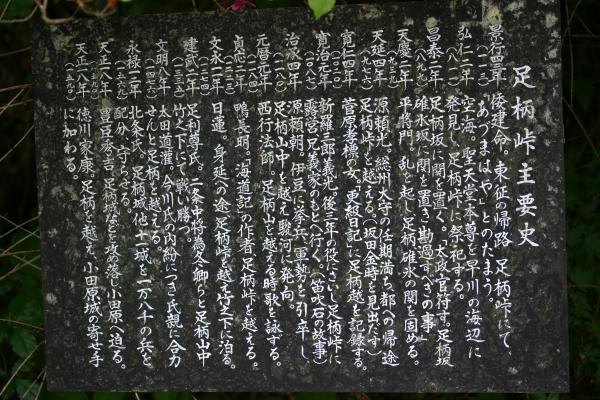 足柄峠主要史
景行四年 倭建命、東征の帰路、足柄峠にて、
(一一三) "あづまはや"とのたまう。
弘仁二年 空海、聖天堂本尊を早川の海辺に
(八一一) 発見し、足柄峠に祭祀する。
昌泰二年 足柄坂に関を置く。"太政官符す。足柄坂
(八九九) 碓氷坂に関を置き勘過すべきの事"
天慶 年 平将門、乱を起し足柄碓氷の関を固める。
天延四年 源頼光、総州大守の任期満ち都への帰途
(九七六) 足柄峠を越える。(坂田金時を見出だす)
寛仁四年 菅原孝標の女、「更級日記」に足柄越を記録する。
寛治元年 新羅三郎義光、後三年の役にさいし足柄峠に
(一〇八七) 露営、兄義家のもとへ行く。(笛吹石の故事)
治承四年 源頼朝、伊豆に挙兵、軍勢を引卒し
足柄山中を越え駿河に発向。
元暦元年 西行法師、足柄山を越える時歌を詠する。
貞応二年 鴨長明、「海道記の作者」足柄峠を越える。
文永一年 日蓮、身延への途、足柄峠を越え竹之下に泊る。
建武二年 足利尊氏、二条中将為冬卿らと足柄山中
(一三三五) 竹之下にて戦い勝つ。
文明八年 太田道灌、今川氏の内紛につき氏親に合力
(一四七六) せんと足柄を越える。
永禄二年 北条氏、足柄城他十一城を一万八千の兵を
記分、守らせる。
天正一八年 豊臣秀吉、足柄城などを攻め落し小田原へ迫る。
天正一八年 徳川家康、足柄を越え、小田原城の寄せ手
(一五九〇) に加わる。